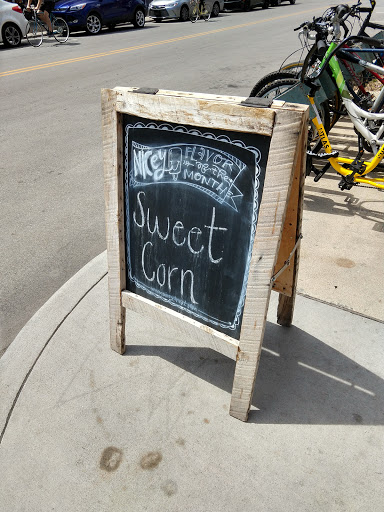 NICEY
FLAVOR
of the
MONTH
Sweet
Corn